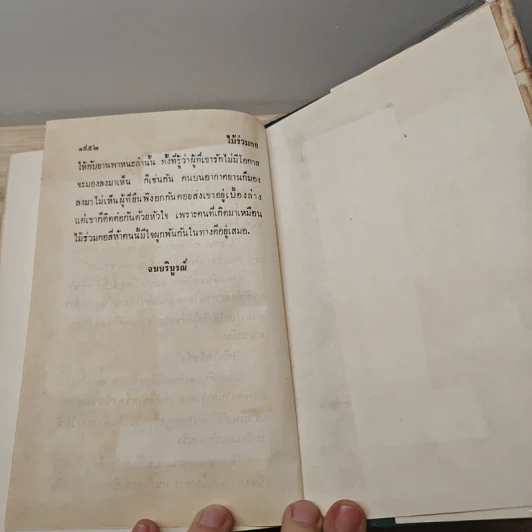 ๑๕๕๒ ไม้ร่วมกอ
ให้กับยานพาหนะลำนั้น ทั้งที่รู้ว่าผู้ที่เขารักไม่มีโอกาส
จะมองลงมาเห็น ก็เช่นกัน คนบนอากาศยานก็มอง
ลงมาไม่เห็นผู้ที่ยืนพิงอกกันคอยส่งเขาอยู่เบื้องล่าง
แต่เขาก็ติดต่อกันด้วยหัวใจ เพราะคนที่เกิดมาเหมือน
ไม้ร่วมกอสี่ห้าคนนี้มีใจผูกพันกันในทางดีอยู่เสมอ.
จบบริบูรณ์